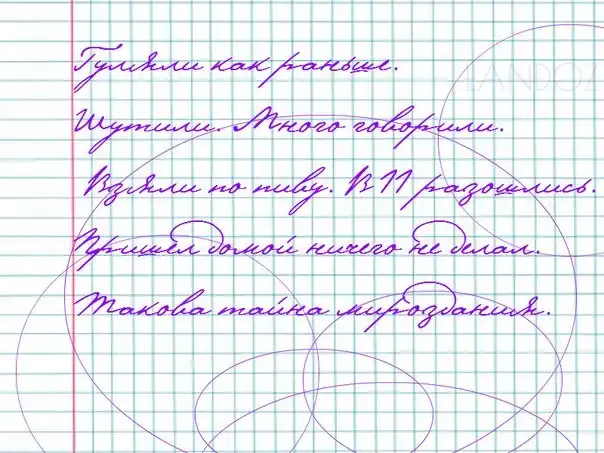 Гуляли как раньше.
Шутили. Много говорили.
Взяли по пиву. В 11 разошлись.
Пришел домой ничего не делал.
Такова тайна мироздания.